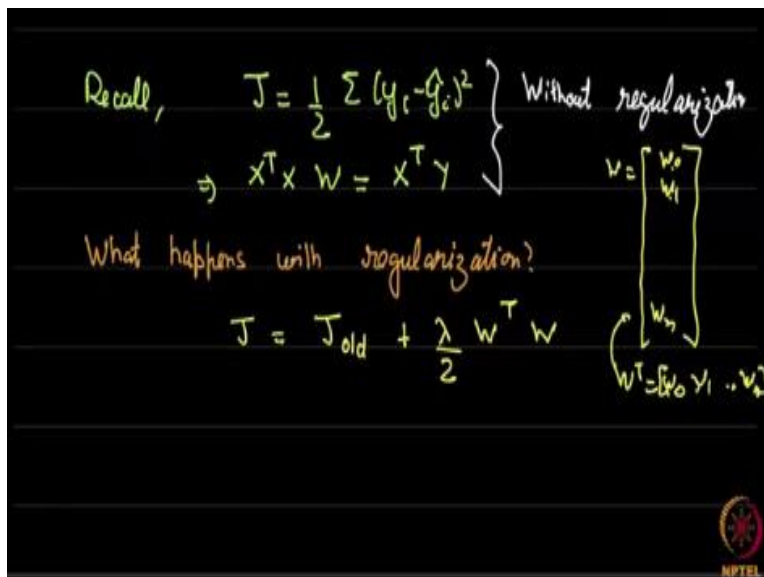 Recall, J = 1/2 Σ (y_i - ŷ_i)² } Without regularization
⇒ X^T X W = X^T Y
W = [w_0 w_1 w_n]
What happens with rogularization?
J = J_old + λ/2 W^T W
W^T = [w_0 w_1 .. w_n]
NPTEL